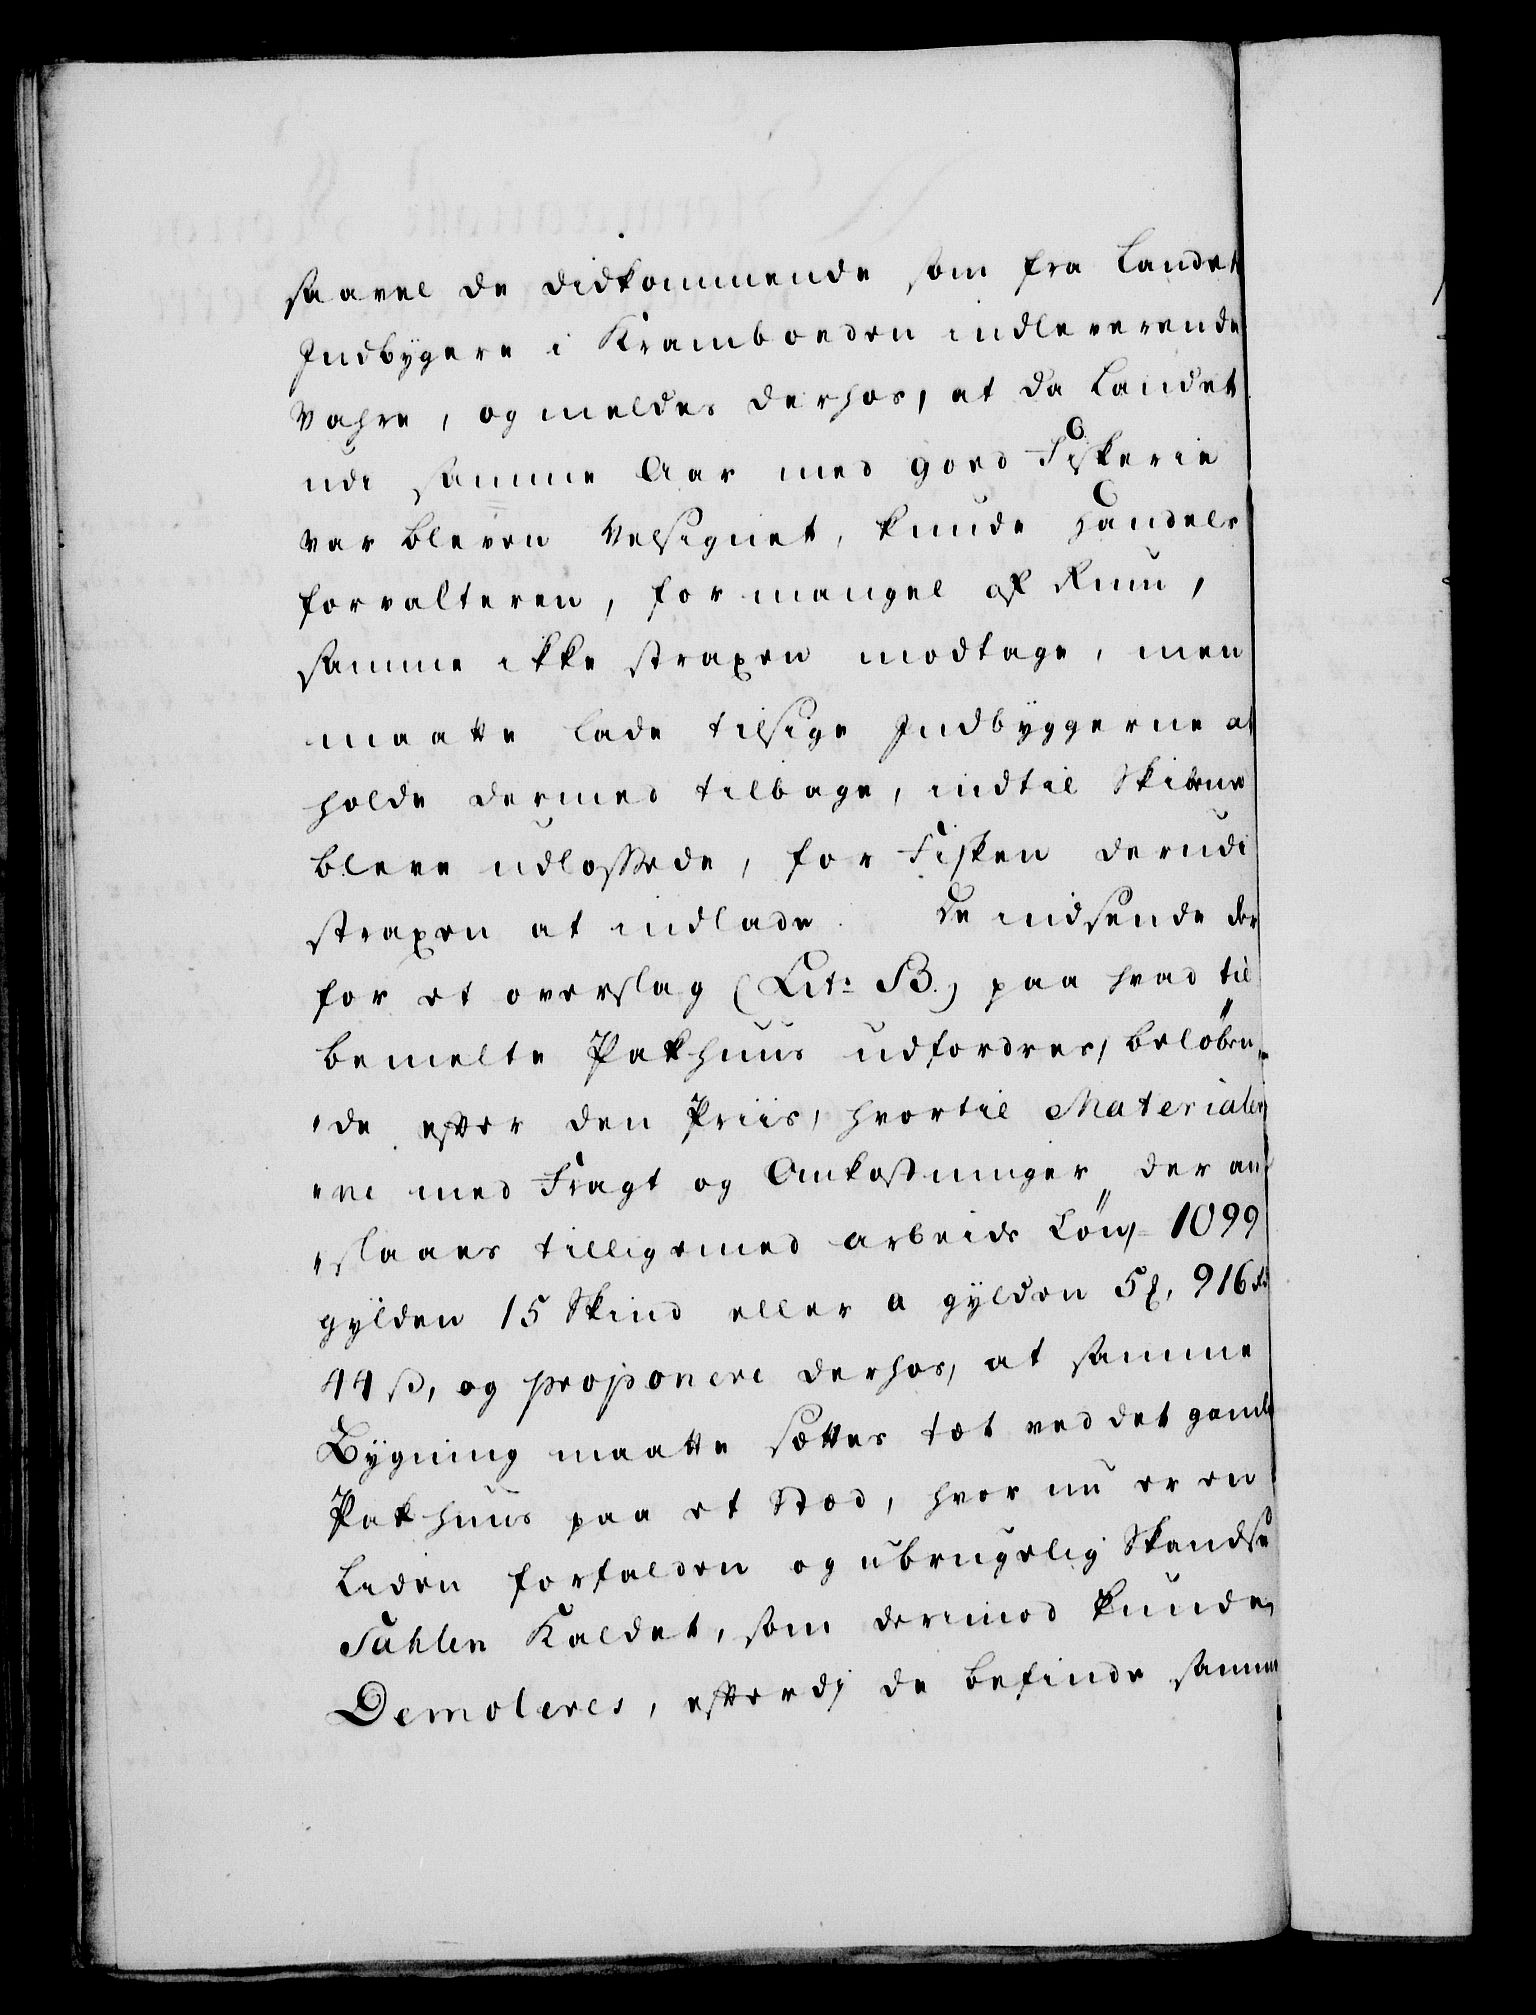 saavel de didkommende som fra Landets
Indbygere i Kramboeden indleverende
Vahre, og meldes derhos, at da Landet
udi samme Aar med goed Fiskerie
var bleven Velsignet, kunde Handels
forvalteren, for mangel af Rum,
samme ikke straxen modtage, men
maatte lade tilsige Indbyggerne at
holde dermed tilbage, indtil Skibene
bleve udlossede, for Fisken derudi
straxen at indlade. De indsende der
for et overslag (Lit: B.) paa hvad til
bemelte Pakhuus udfordres, beløben„
„de efter den Priis, hvortil Materialer„
„ne med Fragt og Omkostninger der an„
„slaaes tilligemed arbeids Løn, 1099
gylden 15 Skind eller a gylden 5 ꝑ, 916 rd
44 ß, og proponere derhos, at samme
Bygning maatte sættes tæt ved det gamle
Pakhuus paa et Stæd, hvor nu er en
Liden forfalden og ubrugelig Skandse
Kaldet, som derimod kunde
Demoleres, efterdj de befinde samme